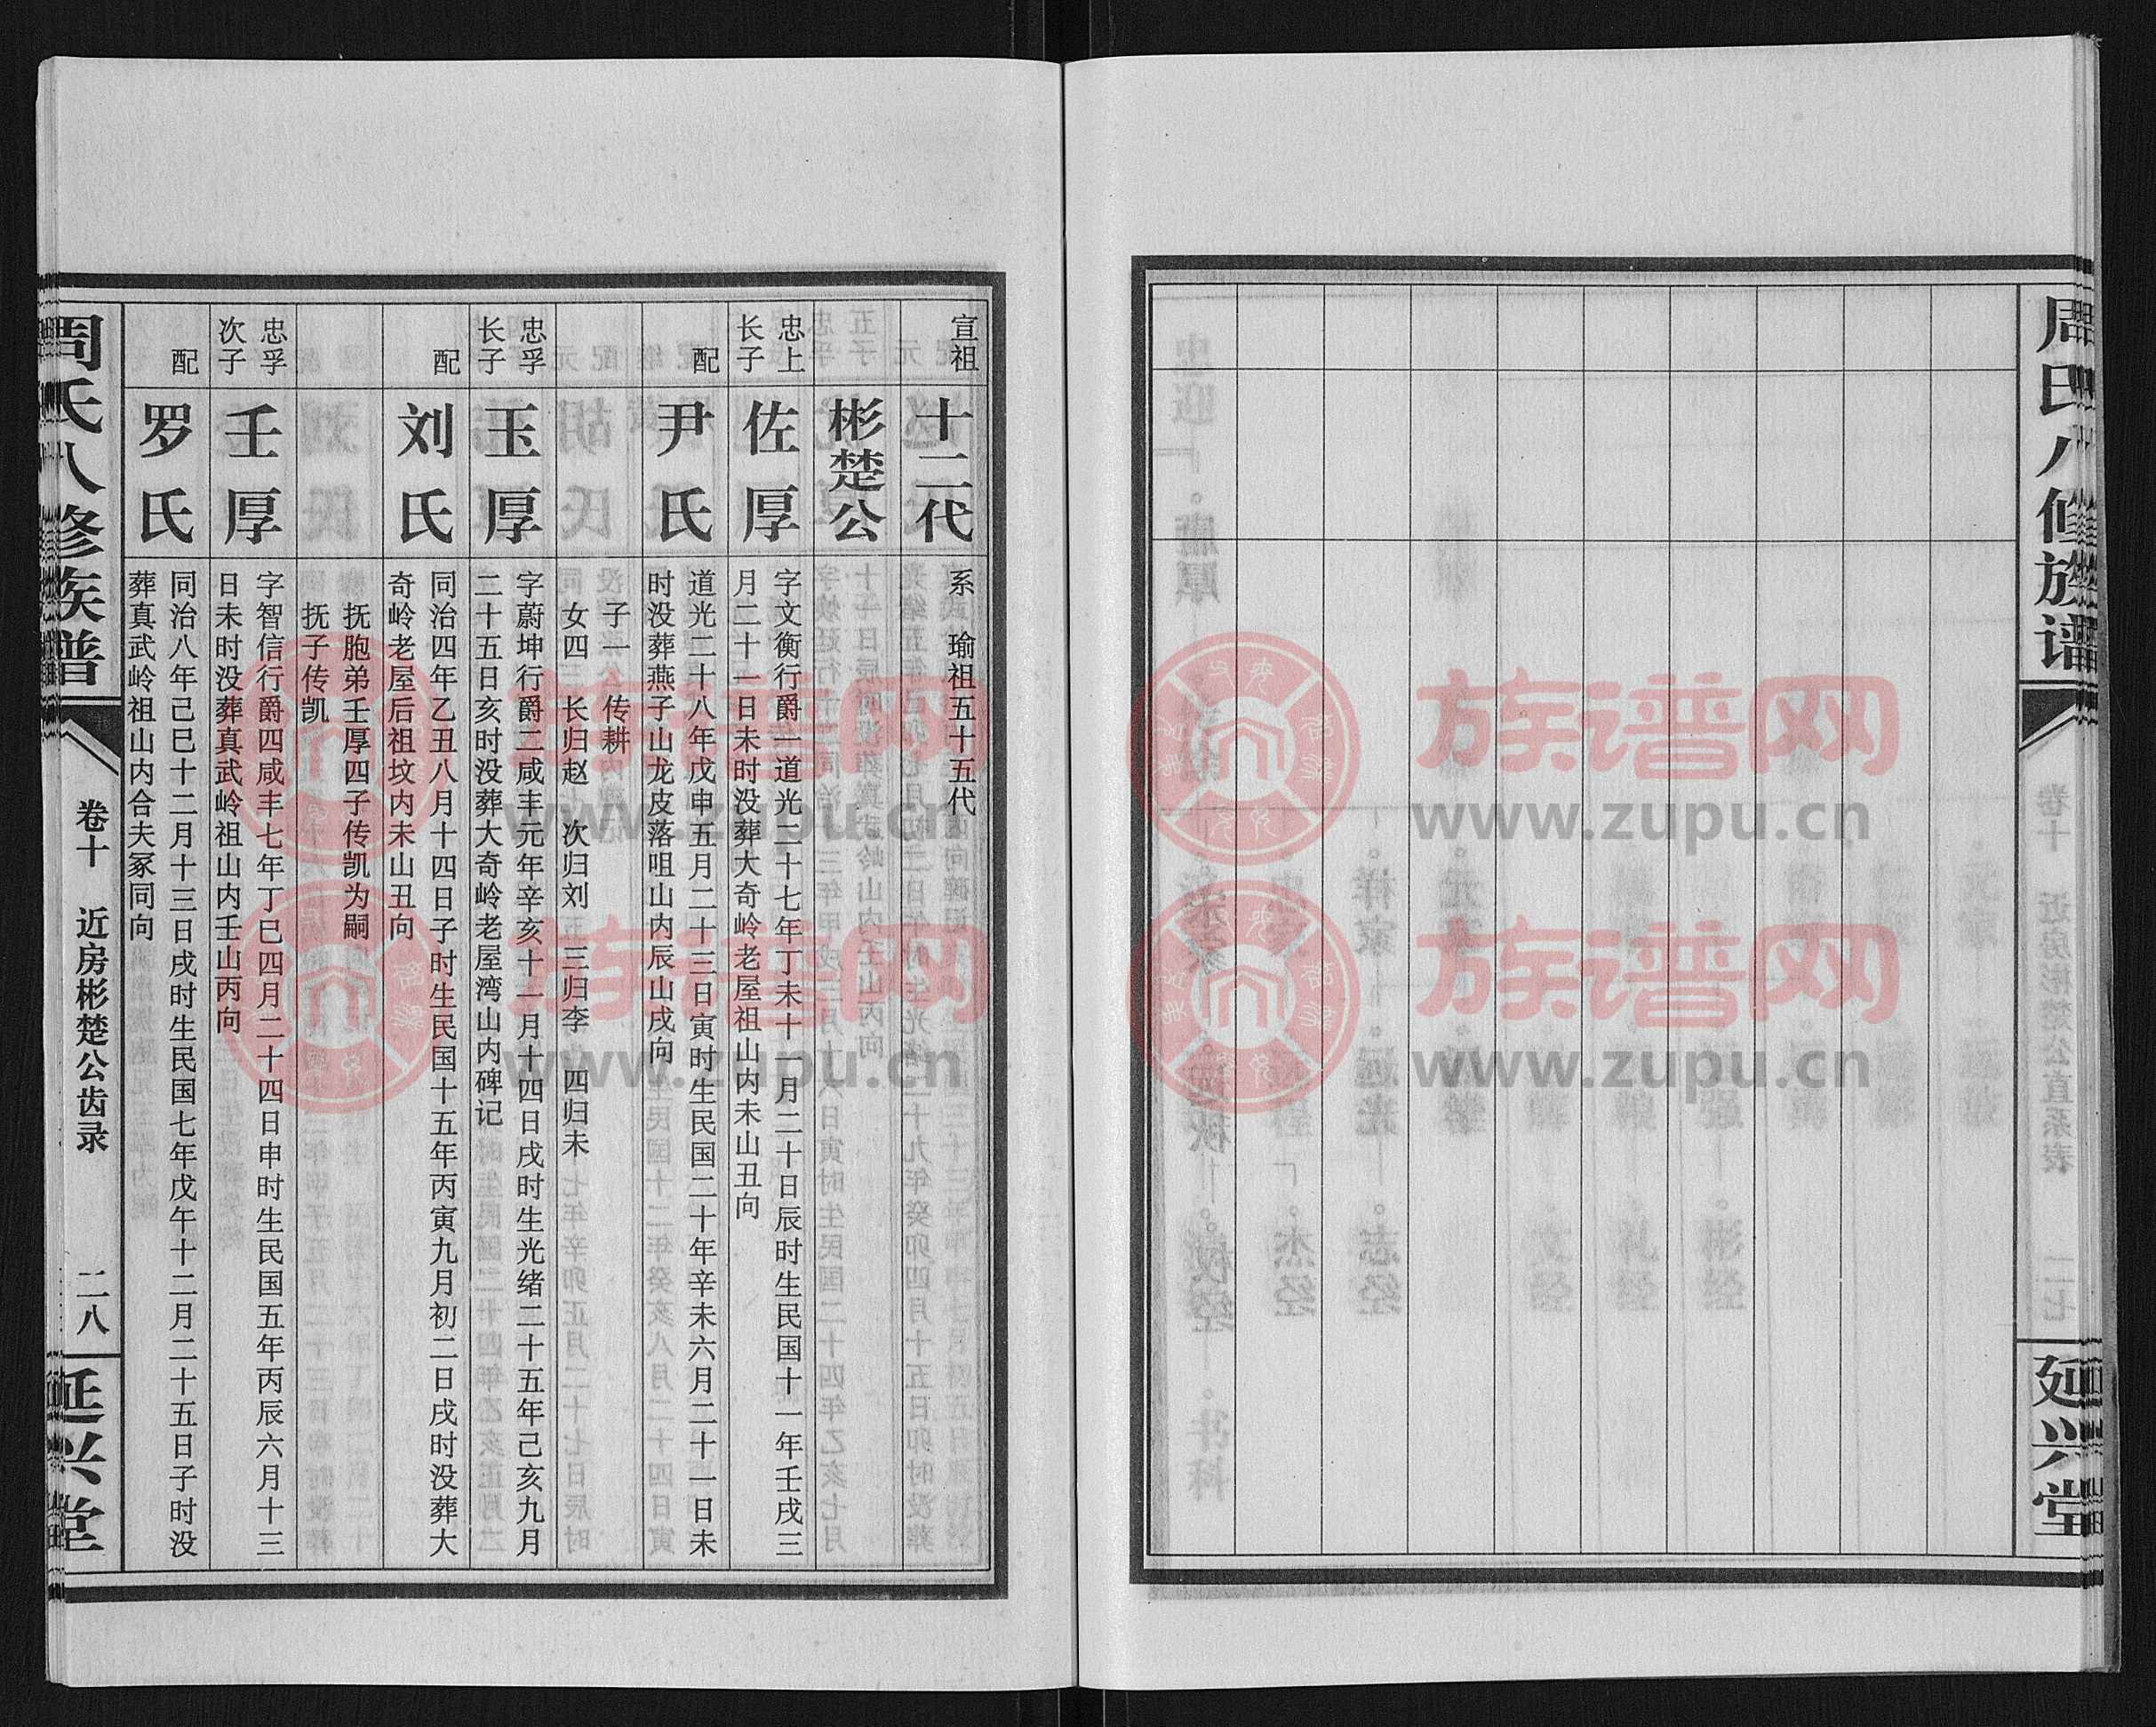 周氏八修族谱
延兴堂
宣祖
十二代
系 瑜祖五十五代
彬楚公
忠上
长子
佐厚
字文衡行爵一道光二十七年丁未十一月二十日辰时生民国十一年壬戌三
月二十一日未时没葬大奇岭老屋祖山内未山丑向
配
尹氏
道光二十八年戊申五月二十三日寅时生民国二十年辛未六月二十一日未
时没葬燕子山龙皮落咀山内辰山戌向
子一 传耕
女四 长归赵 次归刘 三归李 四归未
忠孚
长子
玉厚
字蔚坤行爵二咸丰元年辛亥十一月十四日戌时生光绪二十五年己亥九月
二十五日亥时没葬大奇岭老屋湾山内碑记
配
刘氏
同治四年乙丑八月十四日子时生民国十五年丙寅九月初二日戌时没葬大
奇岭老屋后祖坟内未山丑向
抚胞弟壬厚四子传凯为嗣
抚子传凯
忠孚
次子
壬厚
字智信行爵四咸丰七年丁巳四月二十四日申时生民国五年丙辰六月十三
日未时没葬真武岭祖山内壬山丙向
配
罗氏
同治八年己巳十二月十三日戌时生民国七年戊午十二月二十五日子时没
葬真武岭祖山内合夫冢同向
周氏八修族谱
卷十 近房彬楚公齿录
二八
延兴堂
族谱网
www.zupu.cn
族谱网
www.zupu.cn
族谱网
www.zupu.cn
族谱网
www.zupu.cn